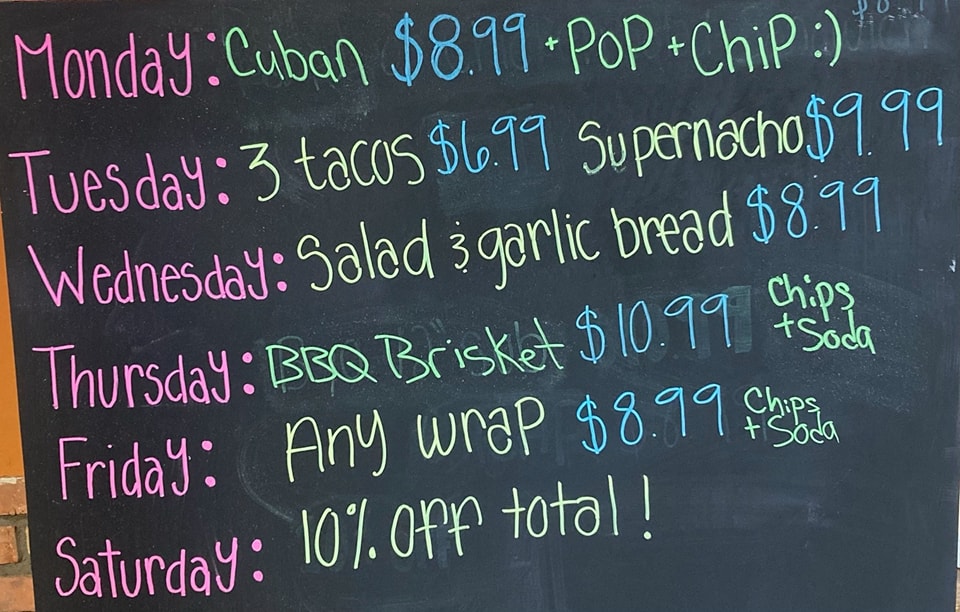 Monday: Cuban $8.99 + PoP + ChiP :)
Tuesday: 3 tacos $6.99 Supernacho $9.99
Wednesday: Salad & garlic bread $8.99
Thursday: BBQ Brisket $10.99 Chips + Soda
Friday: Any wrap $8.99 Chips + Soda
Saturday: 10% off total!